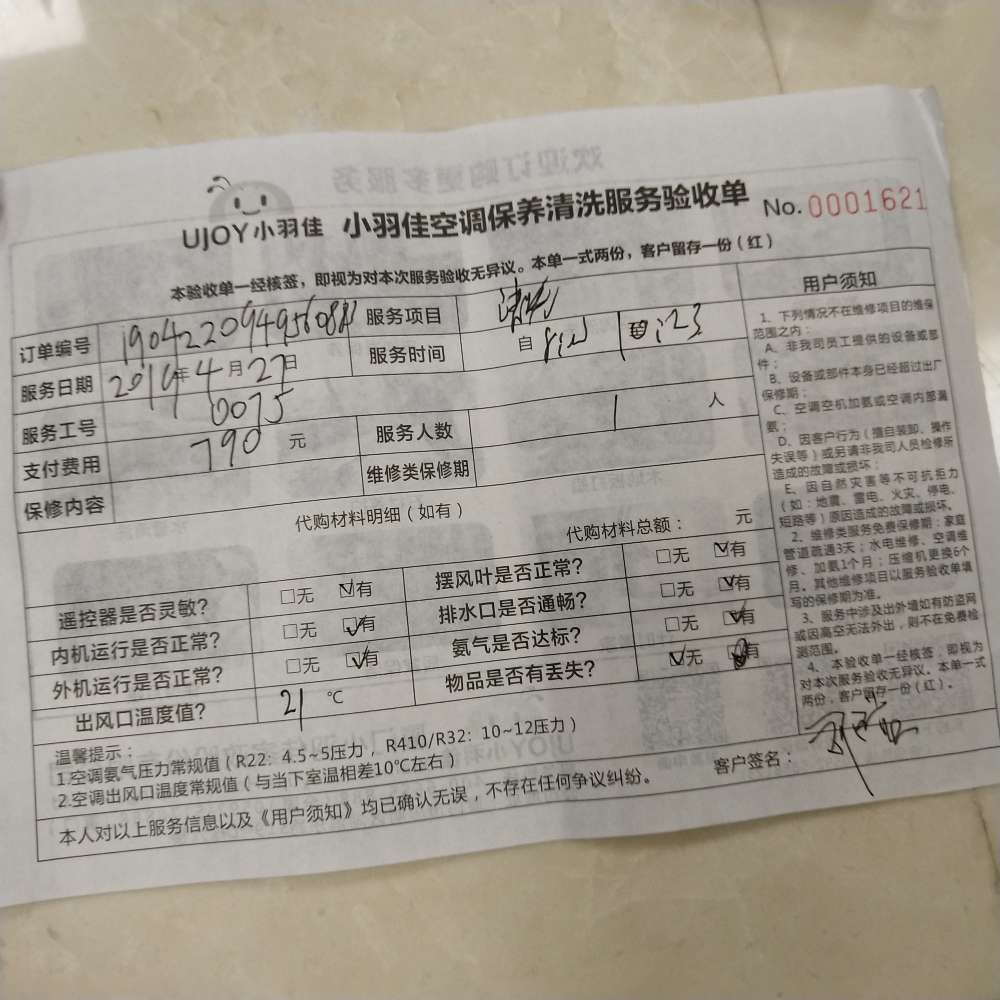 欢迎订购更多服务
UJOY小羽佳 小羽佳空调保养清洗服务验收单 No. 0001621
本验收单一经核签，即视为对本次服务验收无异议。本单一式两份，客户留存一份（红）
订单编号 服务项目 清洗
服务日期 2019年4月27日 服务时间 自
服务工号 0075 服务人数 1 人
支付费用 790 元 维修类保修期
保修内容
代购材料明细（如有）
代购材料总额： 元
遥控器是否灵敏？ □无 ☑有 摆风叶是否正常？ □无 ☑有
内机运行是否正常？ □无 ☑有 排水口是否通畅？ □无 ☑有
外机运行是否正常？ □无 ☑有 氨气是否达标？ □无 ☑有
出风口温度值？ 21 ℃ 物品是否有丢失？ ☑无 有
温馨提示：
1.空调氨气压力常规值（R22：4.5~5压力，R410/R32：10~12压力）
2.空调出风口温度常规值（与当下室温相差10℃左右）
客户签名：
本人对以上服务信息以及《用户须知》均已确认无误，不存在任何争议纠纷。
用户须知
1、下列情况不在维修项目的维保
范围之内：
A、非我司员工提供的设备或部
件；
B、设备或部件本身已经超过出厂
保修期；
C、空调空机加氨或空调内部漏
氨；
D、因客户行为（擅自装卸、操作
失误等）或另请非我司人员检修所
造成的故障或损坏；
E、因自然灾害等不可抗拒力
（如：地震、雷电、火灾、停电、
短路等）原因造成的故障或损坏。
2、维修类服务免费保修期：家庭
管道疏通3天；水电维修、空调维
修、加氨1个月；压缩机更换6个
月。其他维修项目以服务验收单填
写的保修期为准。
3、服务中涉及出外墙如有防盗网
或因高空无法外出，则不在免费检
测范围。
4、本验收单一经核签，即视为
对本次服务验收无异议。本单一式
两份，客户留存一份（红）。